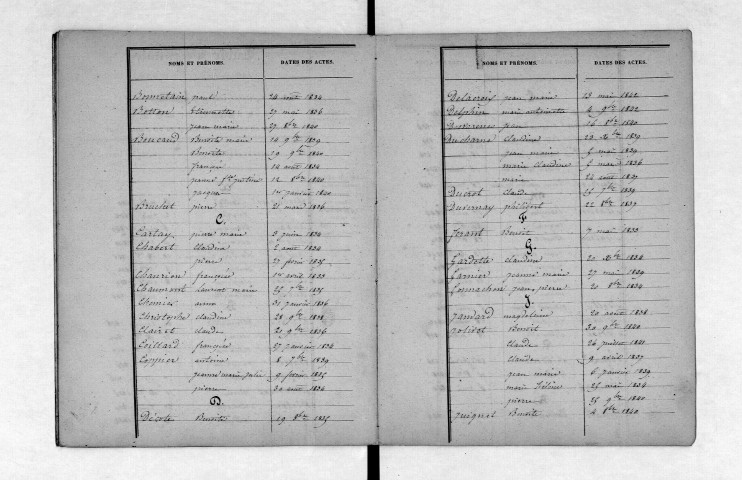 NOMS ET PRÉNOMS. DATES DES ACTES.
Bonnetain paul 24 août 1834
Botton 27 mai 1836
jean marie 27 8bre 1840
Boucaud Benoite marie 14 9bre 1839
Benoite 19 9bre 1840
françois 14 août 1834
12 8bre 1840
jacques 14 janvier 1840
Bruchet pierre 21 mars 1836
C.
Carlay pierre marie 3 juin 1834
Chabert Claudine 2 août 1834
pierre 27 février 1835
Chanrion françoise 17 avril 1833
Chaumont Laurent marie 25 7bre 1835
Chomier anne 31 janvier 1836
Christophe claudine 28 9bre 1838
Clairet claude 21 9bre 1836
Coillard françoise 27 janvier 1834
Coppier antoine 8 7bre 1839
jeanne marie julie 9 février 1835
pierre 30 août 1834
D.
Décote Benoite 19 8bre 1835
NOMS ET PRÉNOMS. DATES DES ACTES.
Delacroix jean marie 13 mai 1842
Delphin marie antoinette 4 9bre 1842
jean 16 8bre 1840
Ducharne claudine 29 Xbre 1839
jean marie 5 mai 1839
marie claudine 5 mars 1836
marie 24 août 1837
Ducrot claude 25 7bre 1839
Duvernay philibert 22 8bre 1837
F
Forant Benoit 7 mai 1833
G.
Gardette claudine 20 Xbre 1834
Garnier jeanne marie 27 mai 1839
Gonnachon jean pierre 20 8bre 1834
J.
Jandard magdeleine 20 août 1838
Jolivot Benoit 30 9bre 1840
Claude 26 juillet 1841
claude 9 avril 1837
jean marie 6 janvier 1839
marie hélène 25 mai 1834
pierre 25 9bre 1840
Juignet Benoite 4 8bre 1840